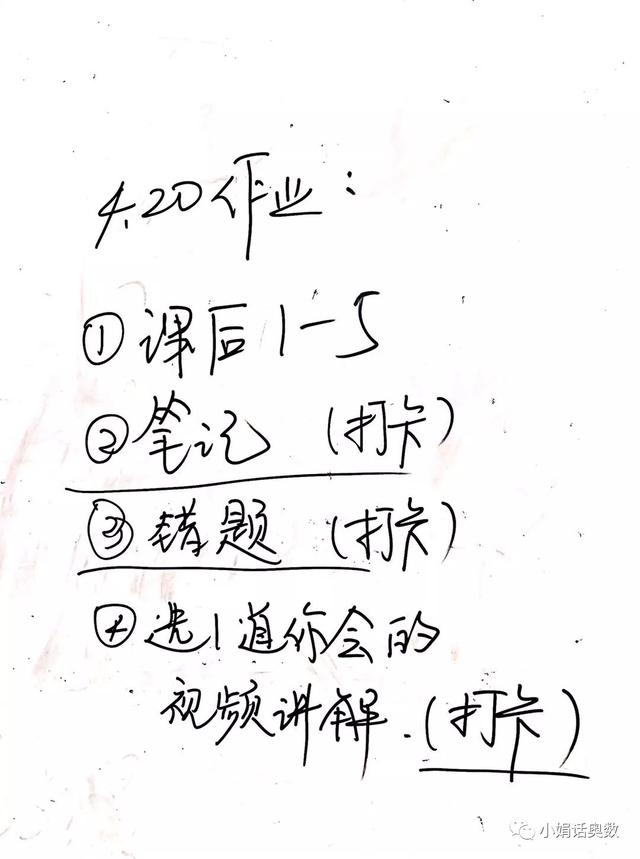 4.20作业：
①课后1-5
②笔记（打卡）
③错题（打卡）
④选1道你会的
视频讲解.（打卡）
小娟话奥数